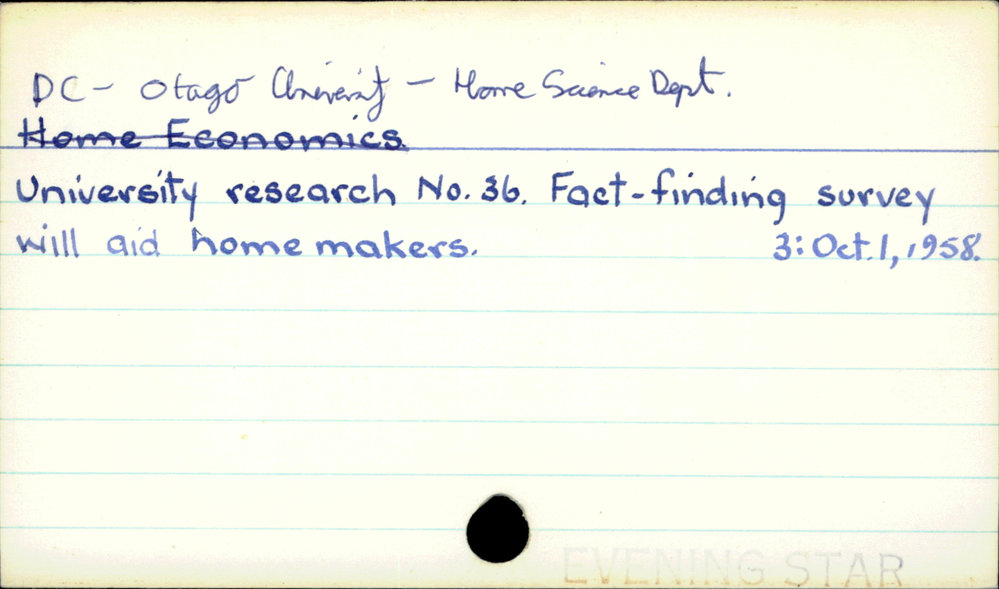 DC - Otago University - Home Science Dept.
Home Economics.
University research No. 36. Fact-finding survey
will aid homemakers. 3: Oct. 1, 1958.
EVENING STAR